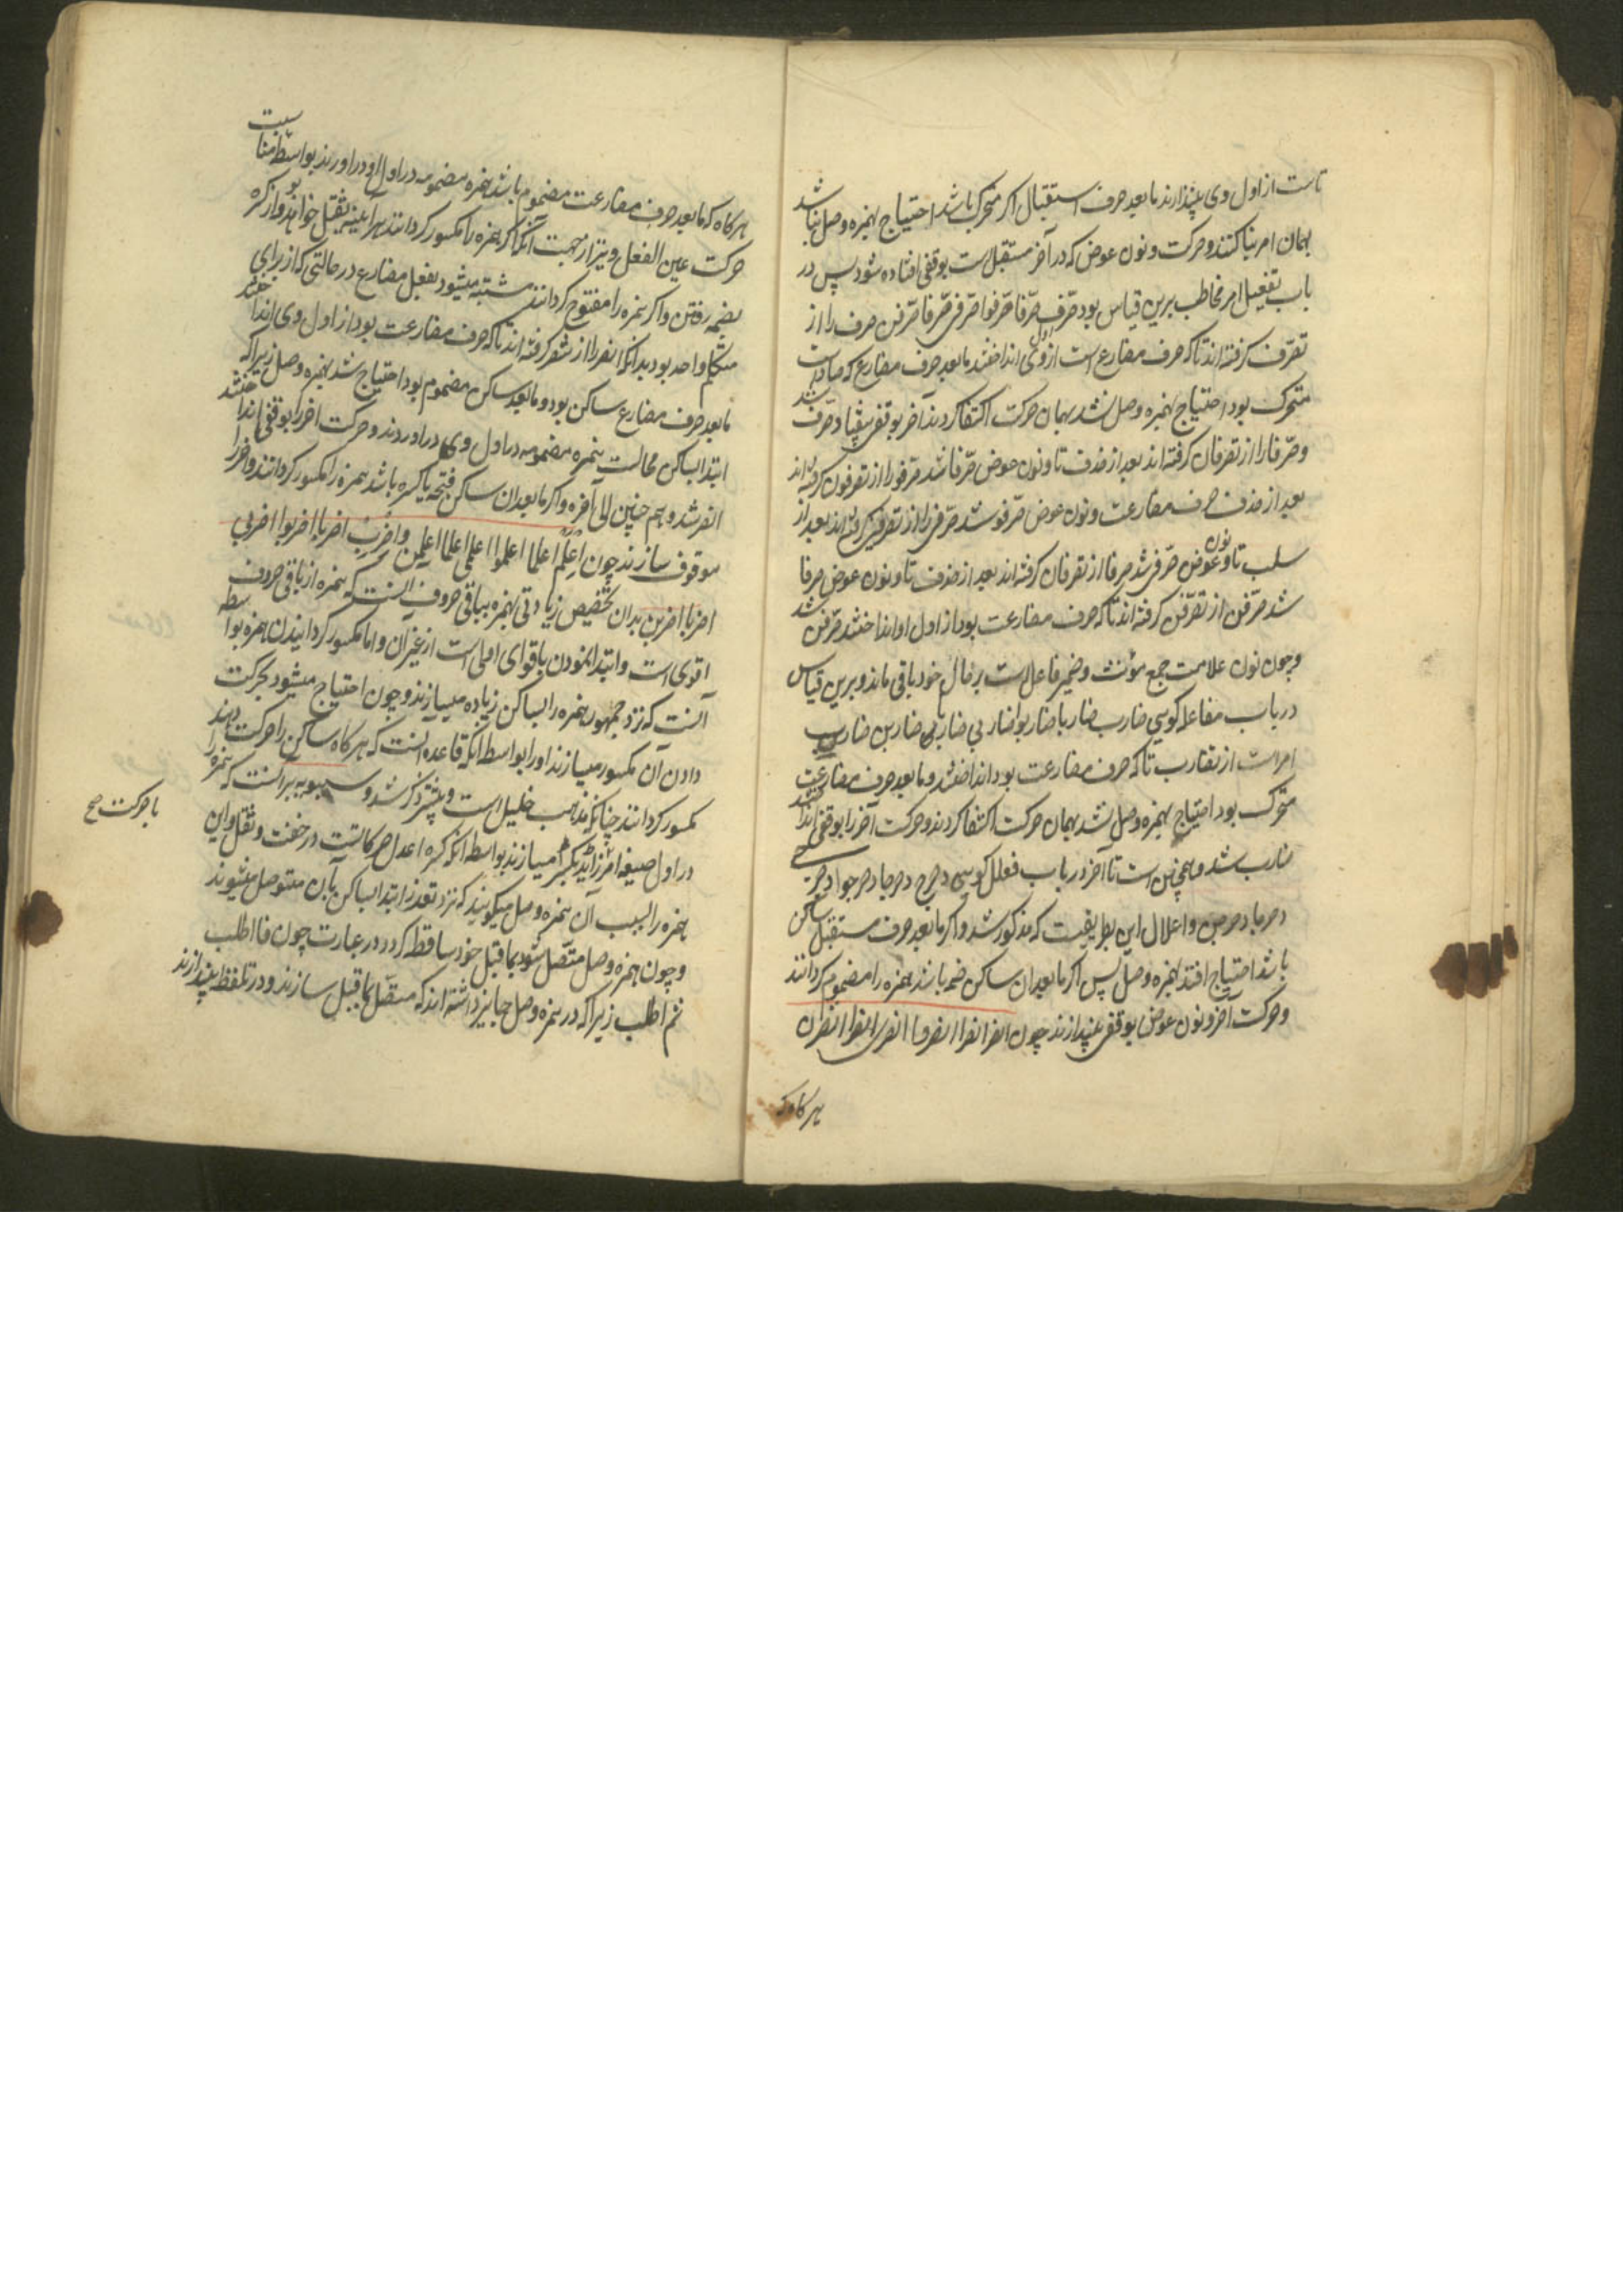 تاست از اول وی بیندازند مابعد حرف استقبال اگر متحرک باشد احتیاج بهمزه وصل نباشد
بهمان امر بنا کنند و حرکت و نون عوض که در آخر مستقبل است بوقفی افتاده شود پس در
باب تفعیل امر مخاطب برین قیاس بود صرّف صرّفا صرّفوا صرّفی صرّفا صرّفن صرف را از
تصرّف گرفته‌اند تا که حرف مضارع است از اول وی انداختند مابعد حرف مضارع که صاد است
متحرک بود احتیاج بهمزه وصل نشد بهمان حرکت اکتفا کردند آخر بوقفی بیفتاد صرّف شد
و صرّفا را از تصرفان گرفته‌اند بعد از حذف تا و نون عوض صرّفا شد صرّفوا را از تصرفون گرفته‌اند
بعد از حذف حرف مضارعت و نون عوض صرّفو شد صرّفی را از تصرفین گرفته‌اند بعد از
سلب تا و نون عوض صرّفی شد صرفا از تصرفان گرفته‌اند بعد از حذف تا و نون عوض صرفا
شد صرّفن از تصرّفن گرفته‌اند تا که حرف مضارعت بود از اول او انداختند صرّفن شد
و چون نون علامت جمع مؤنث و ضمیر فاعل است بر حال خود باقی ماند و برین قیاس
در باب مفاعله گویی ضارب ضاربا ضاربوا ضاربی ضاربا ضاربن ضارب
امر است از تضارب تا که حرف مضارعت بود انداختند و مابعد حرف مضارعت
متحرک بود احتیاج بهمزه وصل نشد بهمان حرکت اکتفا کردند و حرکت آخر را بوقفی انداختند
ضارب شد و همچنین است تا آخر در باب فعلل گویی دحرج دحرجا دحرجوا دحرجی
دحرجا دحرجن و اعلال این بطریقیست که مذکور شد و اگر مابعد حرف مستقبل ساکن
باشد احتیاج افتد بهمزه وصل پس اگر مابعد ان ساکن ضمه باشد همزه را مضموم گردانند
و حرکت آخر و نون عوض بوقفی بیندازند چون انصر انصرا انصروا انصری انصرا انصرن
هرگاه که
هرگاه که مابعد حرف مضارعت مضموم باشد همزه مضمومه در اول او در اورند بواسطه مناسبت
حرکت عین الفعل و نیز از جهت آنکه اگر همزه را مکسور گردانند هرآینه ثقل خواهد بود از کسره
بضمه رفتن و اگر همزه را مفتوح گردانند مشتبه میشود بفعل مضارع در حالتی که از برای
متکلم واحد بود بدانکه انصر را از تنصر گرفته‌اند تا که حرف مضارعت بود از اول وی انداختند
مابعد حرف مضارع ساکن بود و مابعد ساکن مضموم بود احتیاج شد بهمزه وصل زیرا که
ابتدا بساکن محالست همزه مضمومه در اول وی در اوردند و حرکت اخر را بوقفی انداختند
انصر شد و هم چنین الی آخره و اگر مابعد ان ساکن فتحه یا کسره باشد همزه را مکسور گردانند و اخر را
موقوف سازند چون اعلم اعلما اعلموا اعلمی اعلما اعلمن و اضرب اضربا اضربوا اضربی
اضربا اضربن بدان تخصیص زیادتی بهمزه بباقی حروف انست که همزه از باقی حروف
اقوی است و ابتدا نمودن باقوای اولی است از غیر آن و اما مکسور گردانیدن همزه بواسطه
آنست که نزد جمهور همزه را بساکن زیاده میسازند و چون احتیاج میشود بحرکت
دادن آن مکسور میسازند او را بواسطه انکه قاعده انست که هرگاه ساکن را حرکت دهند
مکسور گردانند چنانکه مذهب خلیل است و پیشتر ذکر شد و سیبویه برانست که همزه را
با حرکت صح
در اول صیغه امر زائد بکسر میسازند بواسطه انکه کسره اعدل حرکاتست در خفت و ثقل و این
همزه را بسبب آن همزه وصل میگویند که نزد تعذر ابتدا بساکن بآن متوصل میشوند
و چون همزه وصل متّصل شود بماقبل خود ساقط گردد در عبارت چون فااطلب
ثم اطلب زیرا که در همزه وصل جایز داشته‌اند که متصل بماقبل سازند و در تلفظ بیندازند